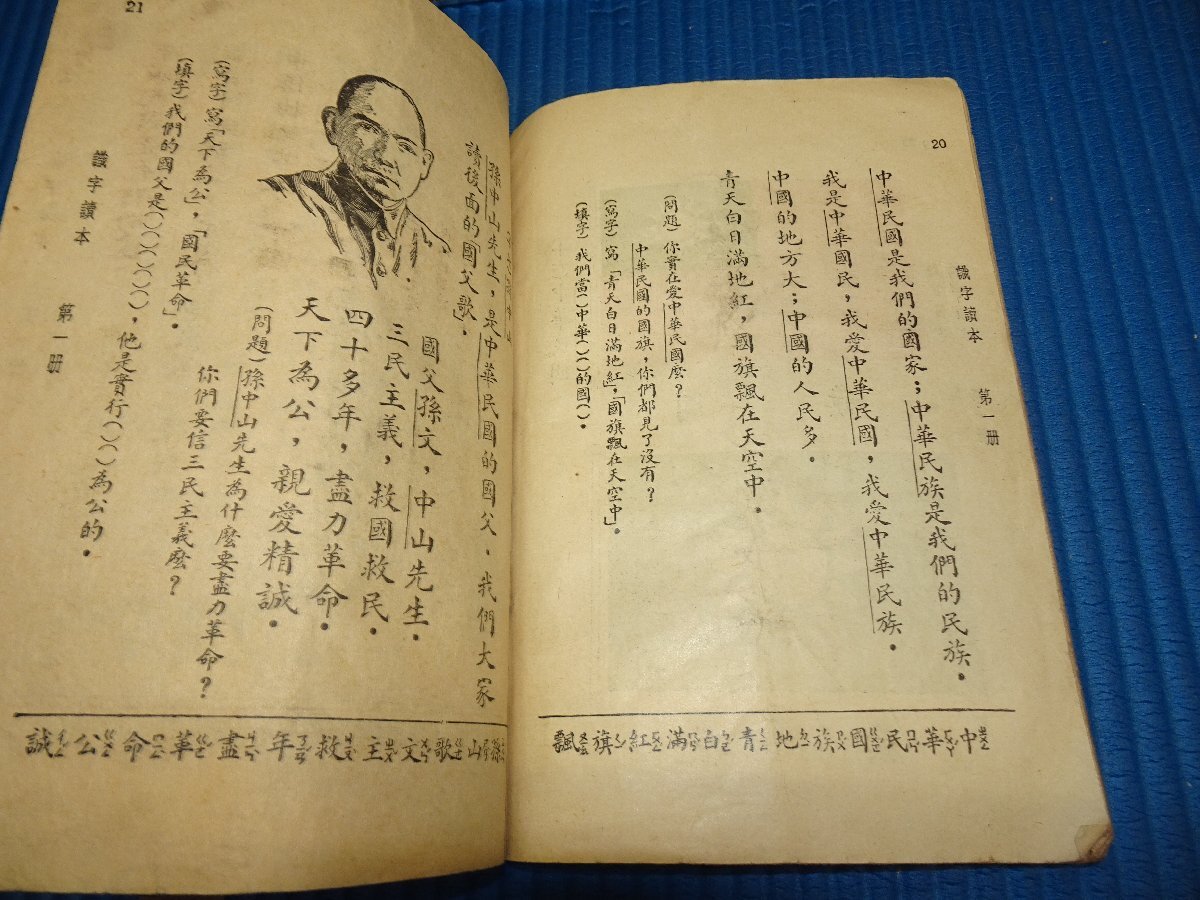 20
識字讀本　第一冊
中華民國是我們的國家；中華民族是我們的民族．
我是中華國民，我愛中華民國，我愛中華民族．
中國的地方大；中國的人民多．
青天白日滿地紅，國旗飄在天空中．
(問題) 你實在愛中華民國麼？
中華民國的國旗，你們都見了沒有？
(寫字) 寫「青天白日滿地紅」，「國旗飄在天空中」．
(填字) 我們當( )中華( )( )的國( )．
中華民國族地青白滿紅旗飄
21
孫中山先生，是中華民國的國父．我們大家
讀後面的國父歌．
國父孫文，中山先生．
三民主義，救國救民．
四十多年，盡力革命．
天下為公，親愛精誠．
(問題) 孫中山先生為什麼要盡力革命？
你們要信三民主義麼？
(寫字) 寫「天下為公」，「國民革命」．
(填字) 我們的國父是( )( )( )( )，他是實行( )( )為公的．
識字讀本　第一冊
孫山歌文主救年盡革命公誠